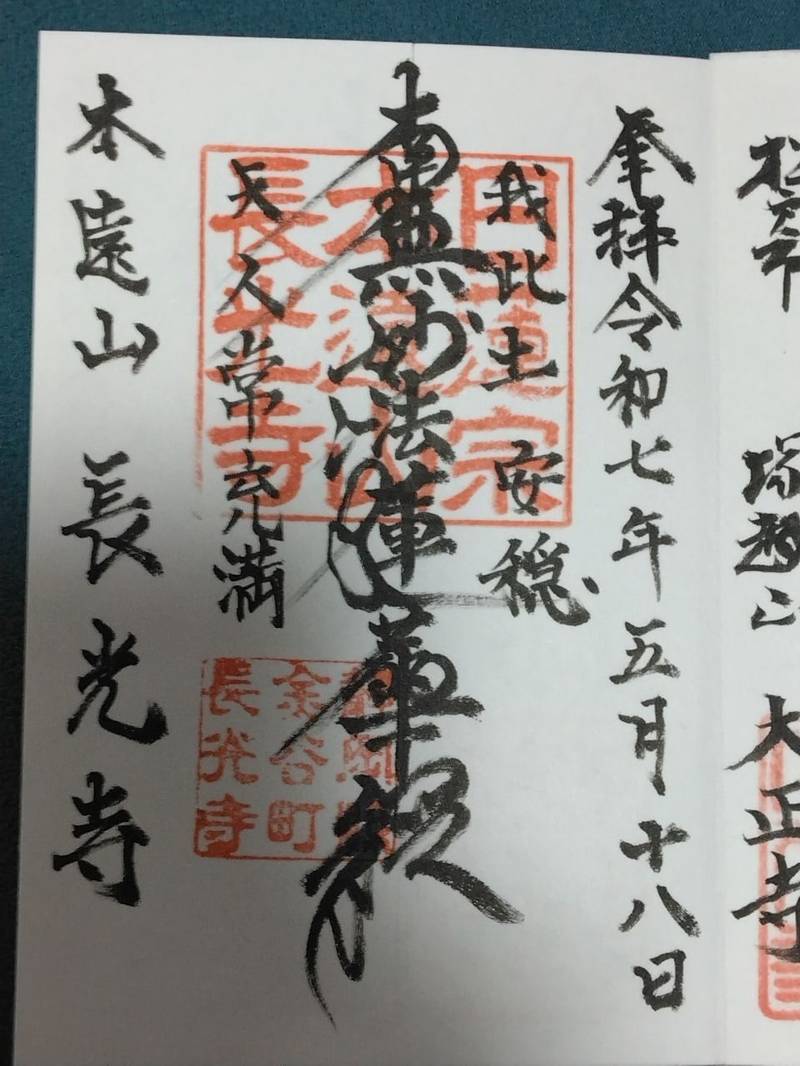 塚越山 大正寺
奉拝 令和七年五月十八日
我此土安穏
南無妙法蓮華経
天人常充満
本遠山 長光寺
日蓮宗
本遠山
長光寺
金谷町
長光寺